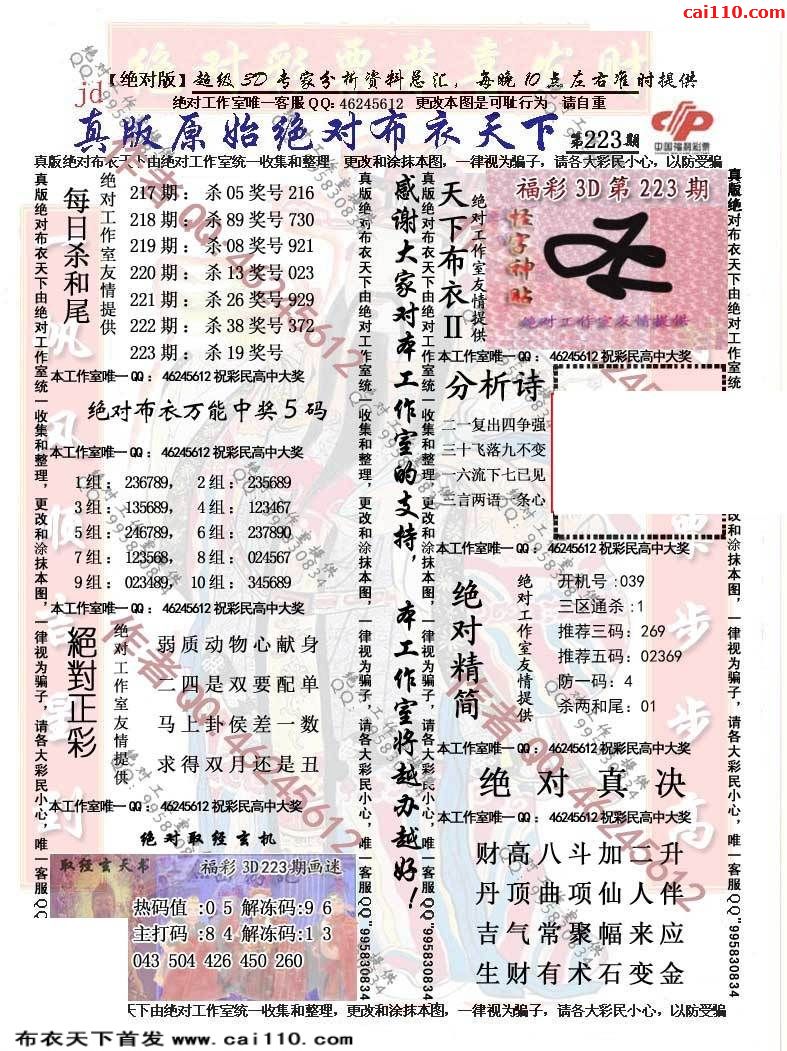 cai110.com
【绝对版】超级3D专家分析资料总汇，每晚10点左右准时提供
jd
绝对工作室唯一客服QQ：46245612 更改本图是可耻行为 请自重
真版原始绝对布衣天下
第223期
中国福利彩票
真版绝对布衣天下由绝对工作室统一收集和整理，更改和涂抹本图，一律视为骗子，请各大彩民小心，以防受骗
每日杀和尾
绝对工作室友情提供
217期：杀05奖号216
218期：杀89奖号730
219期：杀08奖号921
220期：杀13奖号023
221期：杀26奖号929
222期：杀38奖号372
223期：杀19奖号
本工作室唯一QQ：46245612祝彩民高中大奖
绝对布衣万能中奖5码
本工作室唯一QQ：46245612祝彩民高中大奖
1组：236789，2组：235689
3组：135689，4组：123467
5组：246789，6组：237890
7组：123568，8组：024567
9组：023489，10组：345689
本工作室唯一QQ：46245612祝彩民高中大奖
絕對正彩
绝对工作室友情提供
弱质动物心献身
二四是双要配单
马上卦侯差一数
求得双月还是丑
本工作室唯一QQ：46245612祝彩民高中大奖
绝对取经玄机
取经玄天书
福彩3D223期画迷
热码值:05解冻码:96
主打码:84解冻码:13
043 504 426 450 260
感谢大家对本工作室的支持，本工作室将越办越好！
天下布衣II
绝对工作室友情提供
福彩3D第223期
怪字神贴
绝对工作室友情提供
本工作室唯一QQ：46245612祝彩民高中大奖
分析诗
二一复出四争强
三十飞落九不变
一六流下七已见
三言两语一条心
本工作室唯一QQ：46245612祝彩民高中大奖
绝对精简
绝对工作室友情提供
开机号:039
三区通杀:1
推荐三码:269
推荐五码:02369
防一码:4
杀两和尾:01
本工作室唯一QQ：46245612祝彩民高中大奖
绝对真决
本工作室唯一QQ：46245612祝彩民高中大奖
财高八斗加二升
丹顶曲项仙人伴
吉气常聚幅来应
生财有术石变金
真版绝对布衣天下由绝对工作室统一收集和整理，更改和涂抹本图，一律视为骗子，请各大彩民小心，唯一客服QQ"995830834
天下由绝对工作室统一收集和整理，更改和涂抹本图，一律视为骗子，请各大彩民小心，以防受骗
布衣天下首发 www.cai110.com